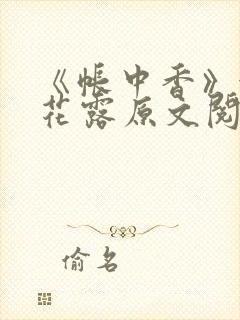 《帐中香》
花露原文阅
偷名